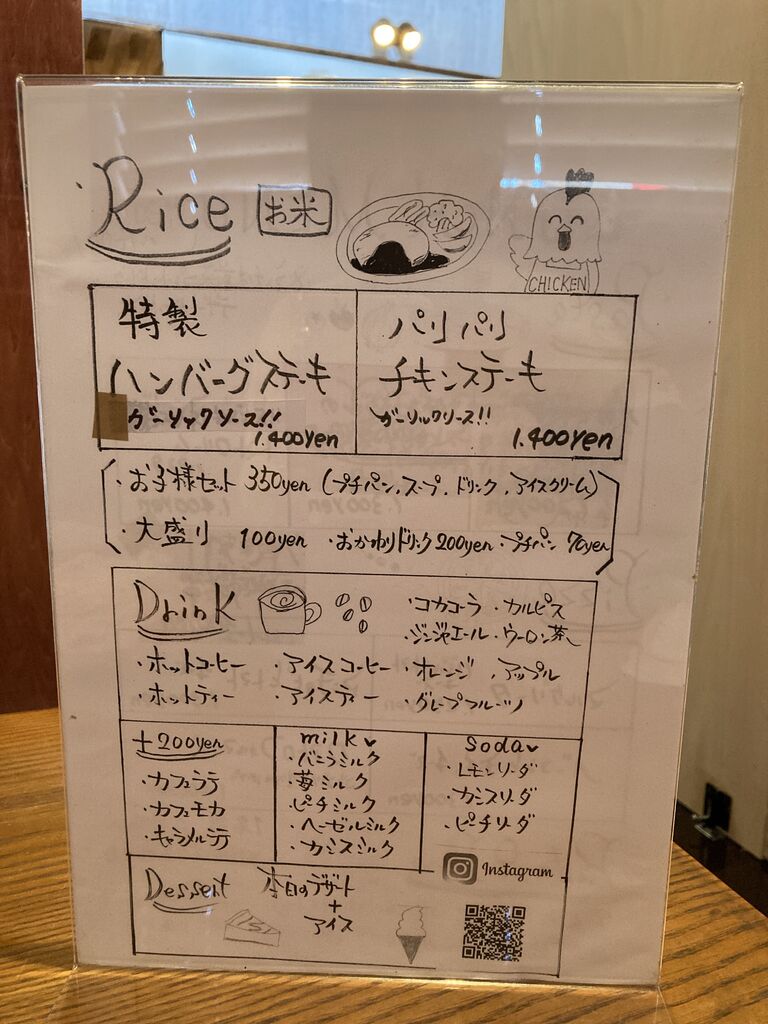 Rice お米
CHICKEN
特製
ハンバーグステーキ
ガーリックソース!!
1.400yen
パリパリ
チキンステーキ
ガーリックソース!!
1.400yen
・お子様セット 350yen (プチパン、スープ、ドリンク、アイスクリーム)
・大盛り 100yen ・おかわりドリンク200yen ・プチパン 70yen
Drink
・コカコーラ ・カルピス
・ジンジャエール ・ウーロン茶
・ホットコーヒー ・アイスコーヒー ・オレンジ ・アップル
・ホットティー ・アイスティー ・グレープフルーツ
+200yen
・カフェラテ
・カフェモカ
・キャラメルラテ
milk♥
・バニラミルク
・苺ミルク
・ピーチミルク
・ヘーゼルミルク
・カシスミルク
Soda♥
・レモンソーダ
・カシスソーダ
・ピーチソーダ
Instagram
Dessert 本日のデザート
+
アイス